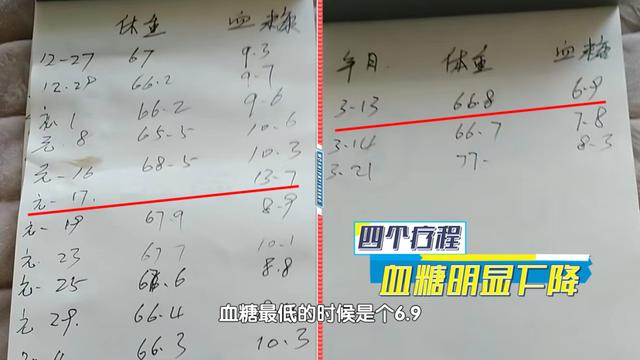 体重 血糖
12-27 67 9.3
12.29 66.2 9.7
元.1 66.2 9.6
元.8 65-5 10.6
元-16 68-5 10.3
元-17. 13-7
元-19 67.9 8-9
元.23 67.7 10.1
元-25 66.6 8.8
元29. 66.4
66.3 10.3
年月 体重 血糖
3-13 66.8 6.9
3-14 66.7 7-8
3-21 77- 8-3
四个疗程
血糖明显下降
血糖最低的时候是个6.9